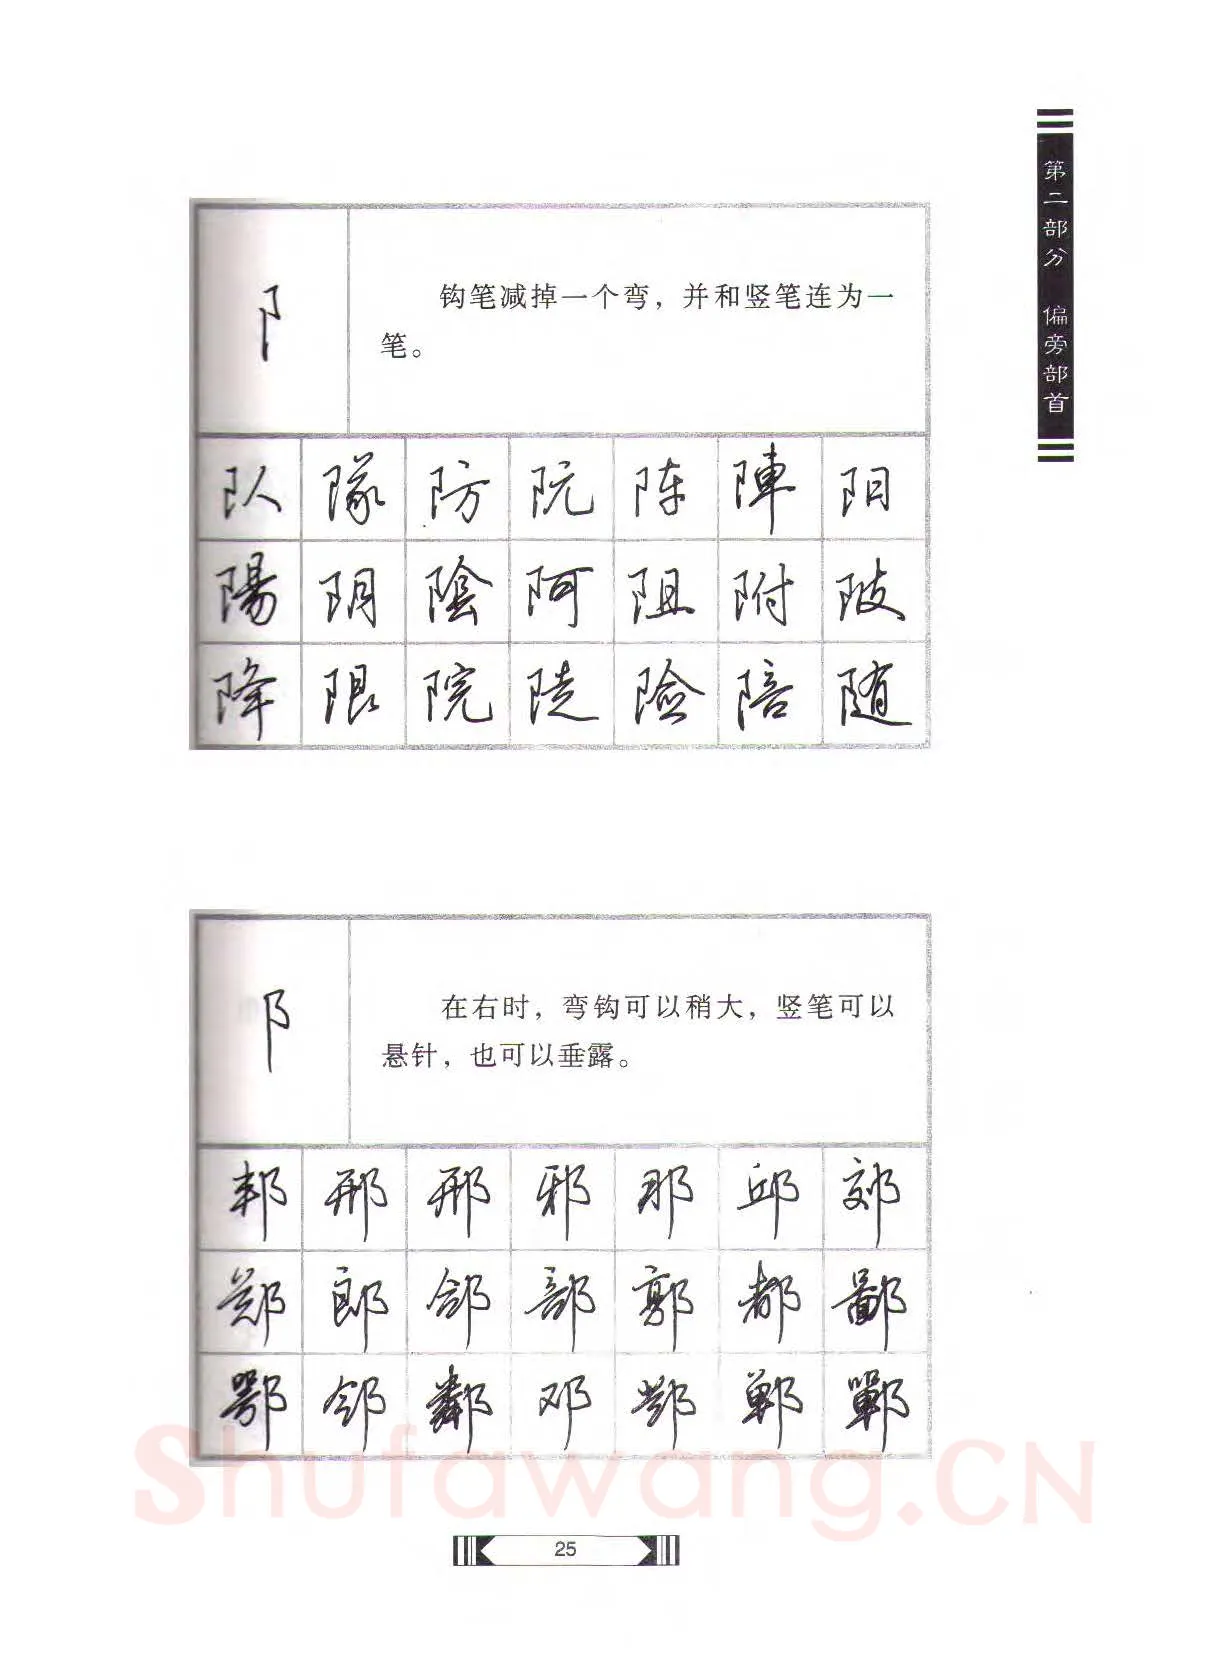 第二部分 偏旁部首
阝
钩笔减掉一个弯，并和竖笔连为一
笔。
队 隊 防 阮 阵 陣 阳
陽 阴 陰 阿 阻 附 陂
降 限 院 陡 險 陪 随
阝
在右时，弯钩可以稍大，竖笔可以
悬针，也可以垂露。
邦 邢 邢 邪 那 邱 郊
郑 郎 郃 部 郭 都 鄙
鄂 邻 鄰 邓 鄧 郸 鄲
Shufawang.CN
25